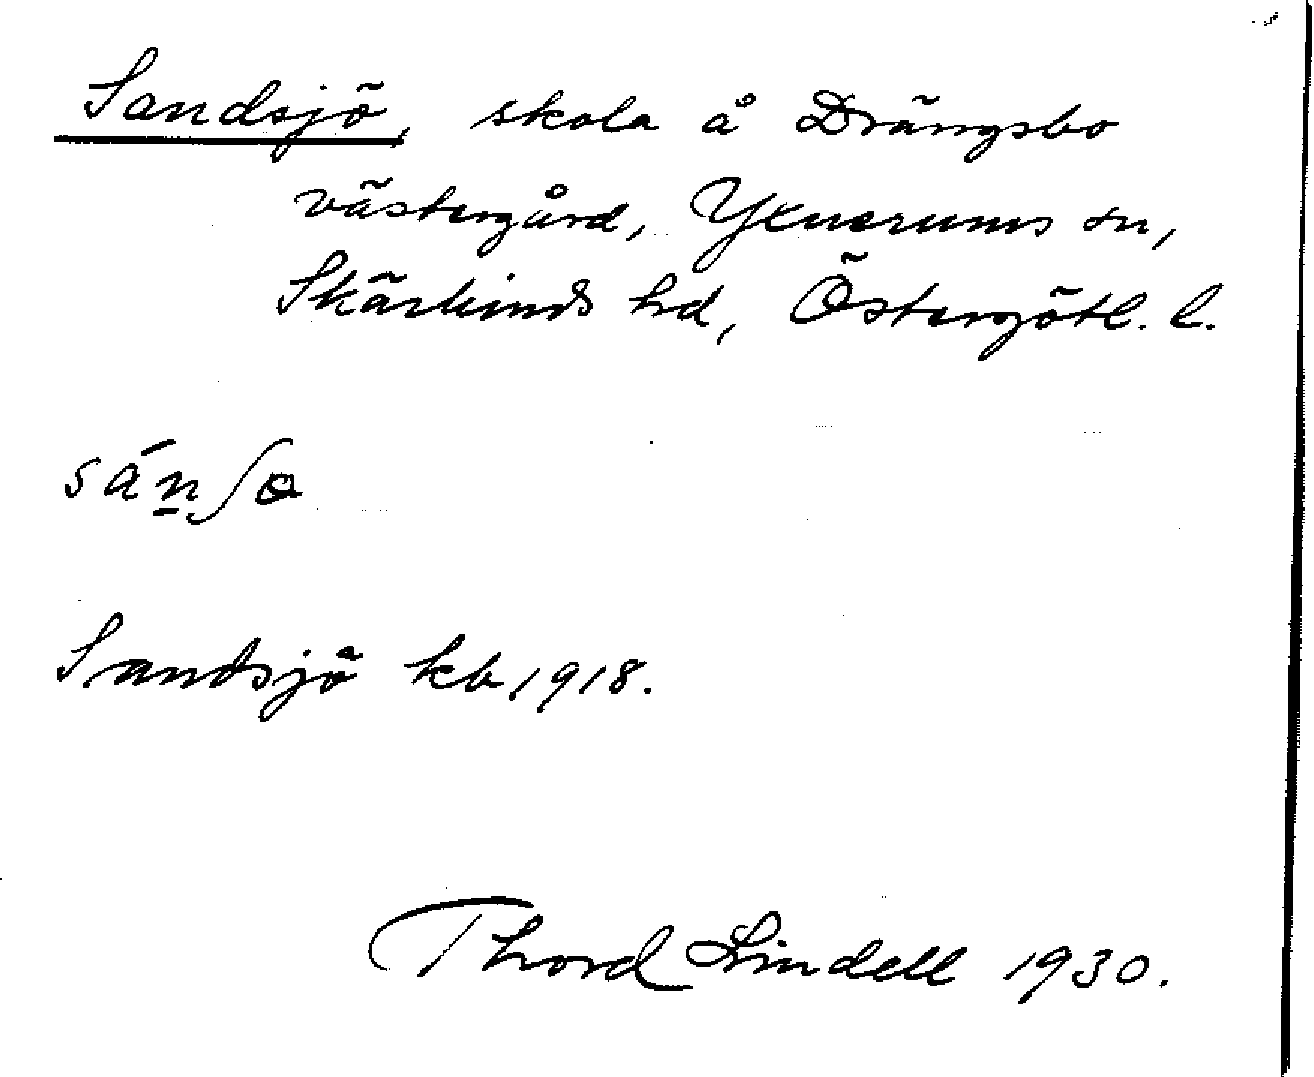 Sandsjö, skola å Drängsbo
västergård, Yxnerums sn,
Skärkinds hd, Östergötl. l.
sán̲ʃɵ
Sandsjö kb 1918.
Thord Lindell 1930.